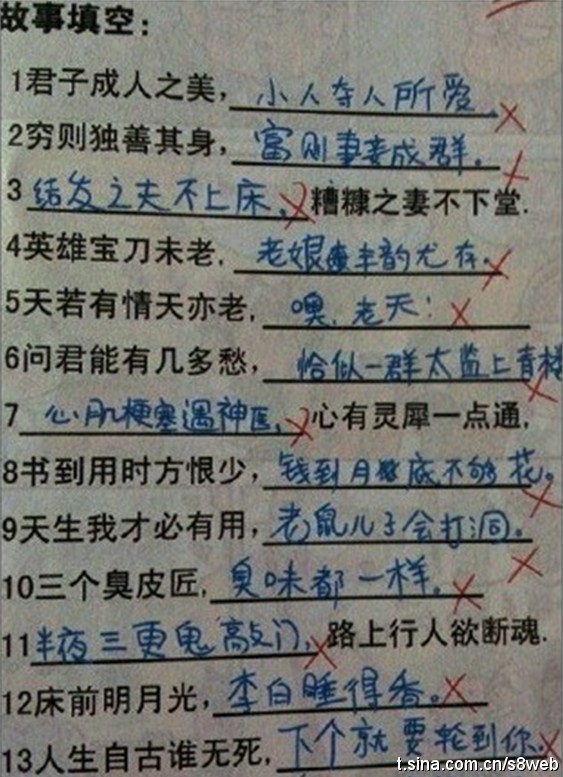 故事填空:
1君子成人之美,小人夺人所爱。
2穷则独善其身,富则妻妾成群。
3结发之夫不上床,糟糠之妻不下堂.
4英雄宝刀未老,老娘丰韵尤存。
5天若有情天亦老,噢,老天!
6问君能有几多愁,恰似一群太监上青楼
7心肌梗塞遇神医,心有灵犀一点通,
8书到用时方恨少,钱到月底不够花。
9天生我才必有用,老鼠儿子会打洞。
10三个臭皮匠,臭味都一样。
11半夜三更鬼敲门,路上行人欲断魂.
12床前明月光,李白睡得香。
13人生自古谁无死,下个就要轮到你.
t.sina.com.cn/s8web